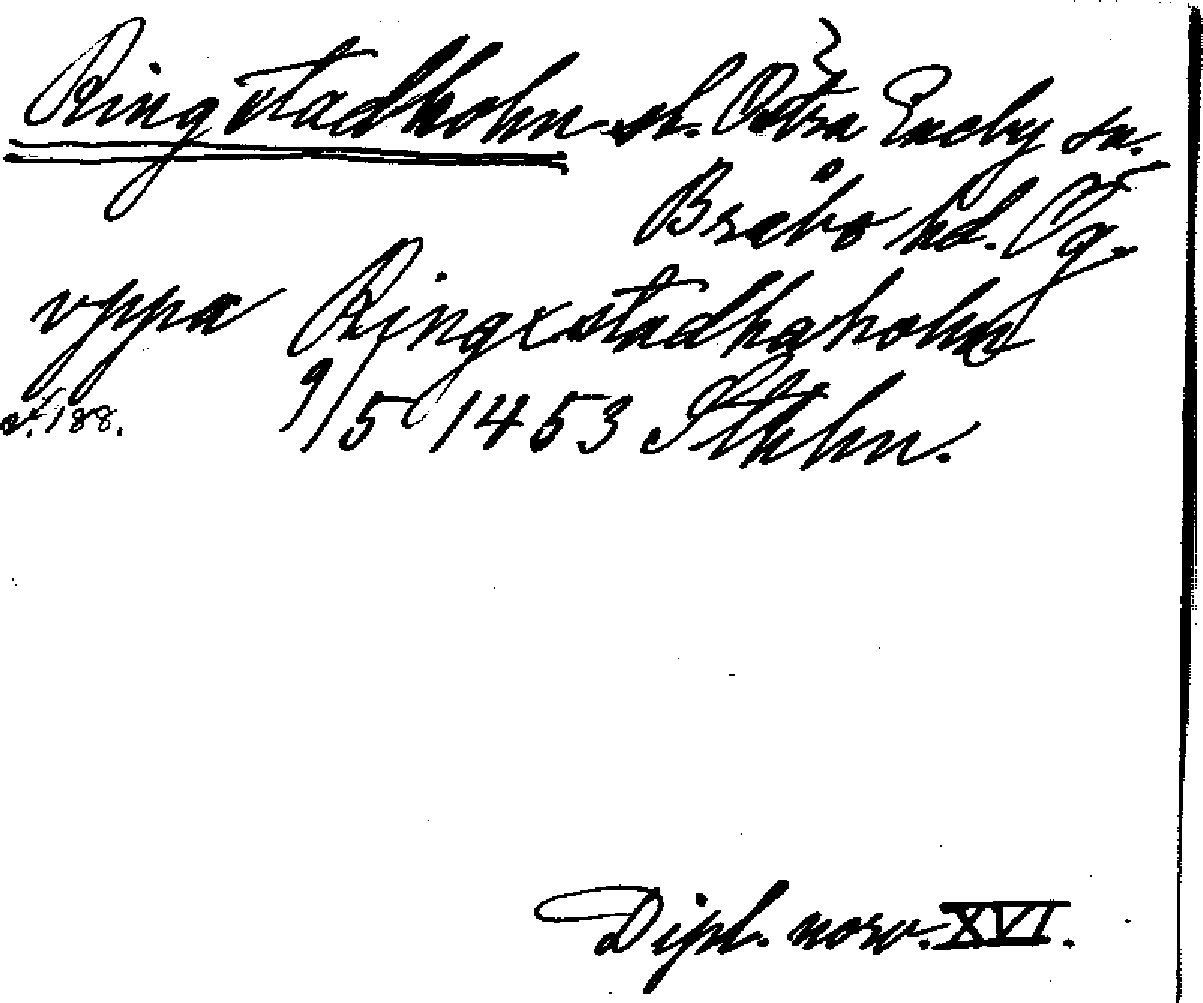 Ringstadholm sl. Östra Eneby sn.
Bråbo hd. Ög.
vppa Ringxstadhaholm
s. 188. 9/5 1453 Sthlm.
Dipl. norv. XVI.